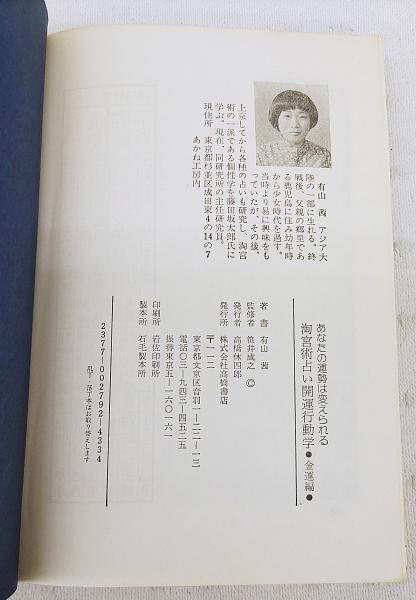 有山　茜　アジア大
陸の一部に生れる。終
戦後、父親の郷里であ
る鹿児島に住み幼年時
から少女時代を過す。
当時より易に興味をも
っていたが、その後、
上京してから各種の占いも研究し、淘宮
術の一派である個性学を藤田坂太郎氏に
学ぶ。現在、同研究所の主任研究員。
現住所　東京都杉並区成田東４の14の７
あかね工房内
あなたの運勢は変えられる
淘宮術占い開運行動学●金運編●
著者　有山　茜
監修者　笹井成之　©
発行者　高橋休四郎
発行所　株式会社高橋書店
〒一一二
東京都文京区音羽一ー二二ー一三
電話〇三ー九四三ー四五二五
振替東京五ー一六〇一六一
印刷所　岩佐印刷所
製本所　石毛製本所
2377―002792―4334
乱丁・落丁本はお取り替えします